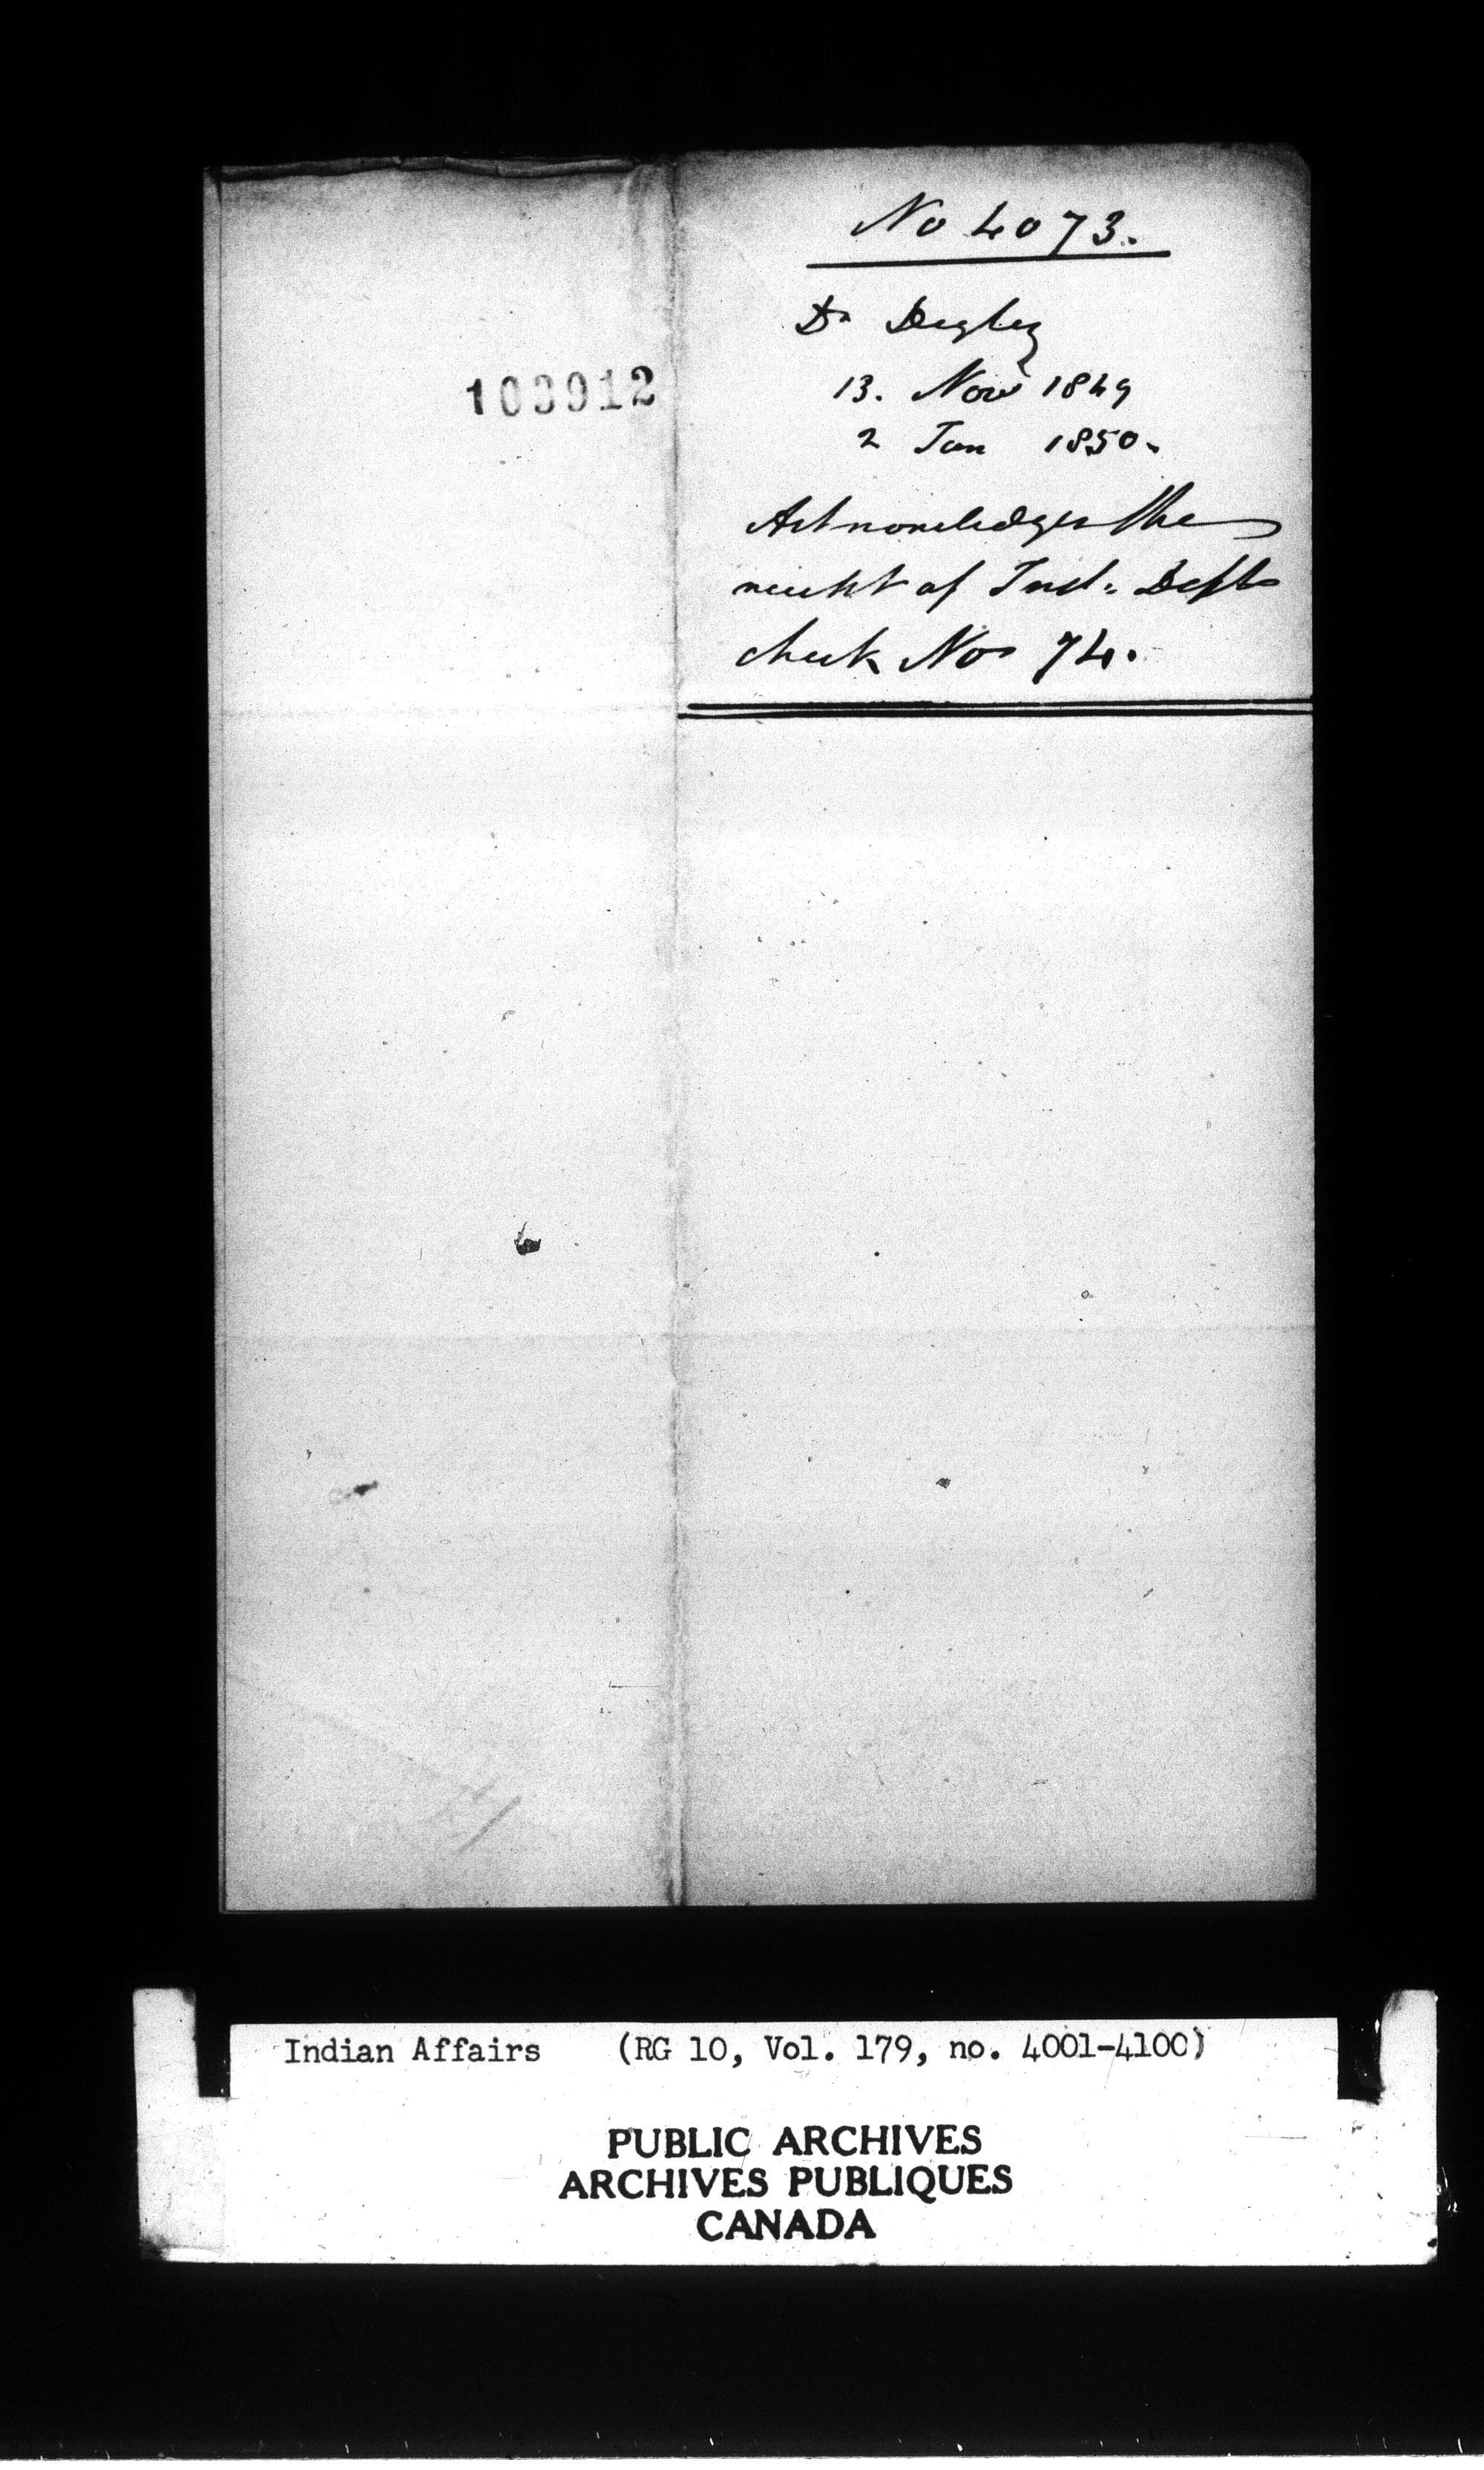 No 4073.
103912
Dr Degley
13. Nov 1849
2 Jan 1850.
Acknowledges the
receipt of Ind. Deptl
check No 74.
Indian Affairs (RG 10, Vol. 179, no. 4001-4100)
PUBLIC ARCHIVES
ARCHIVES PUBLIQUES
CANADA